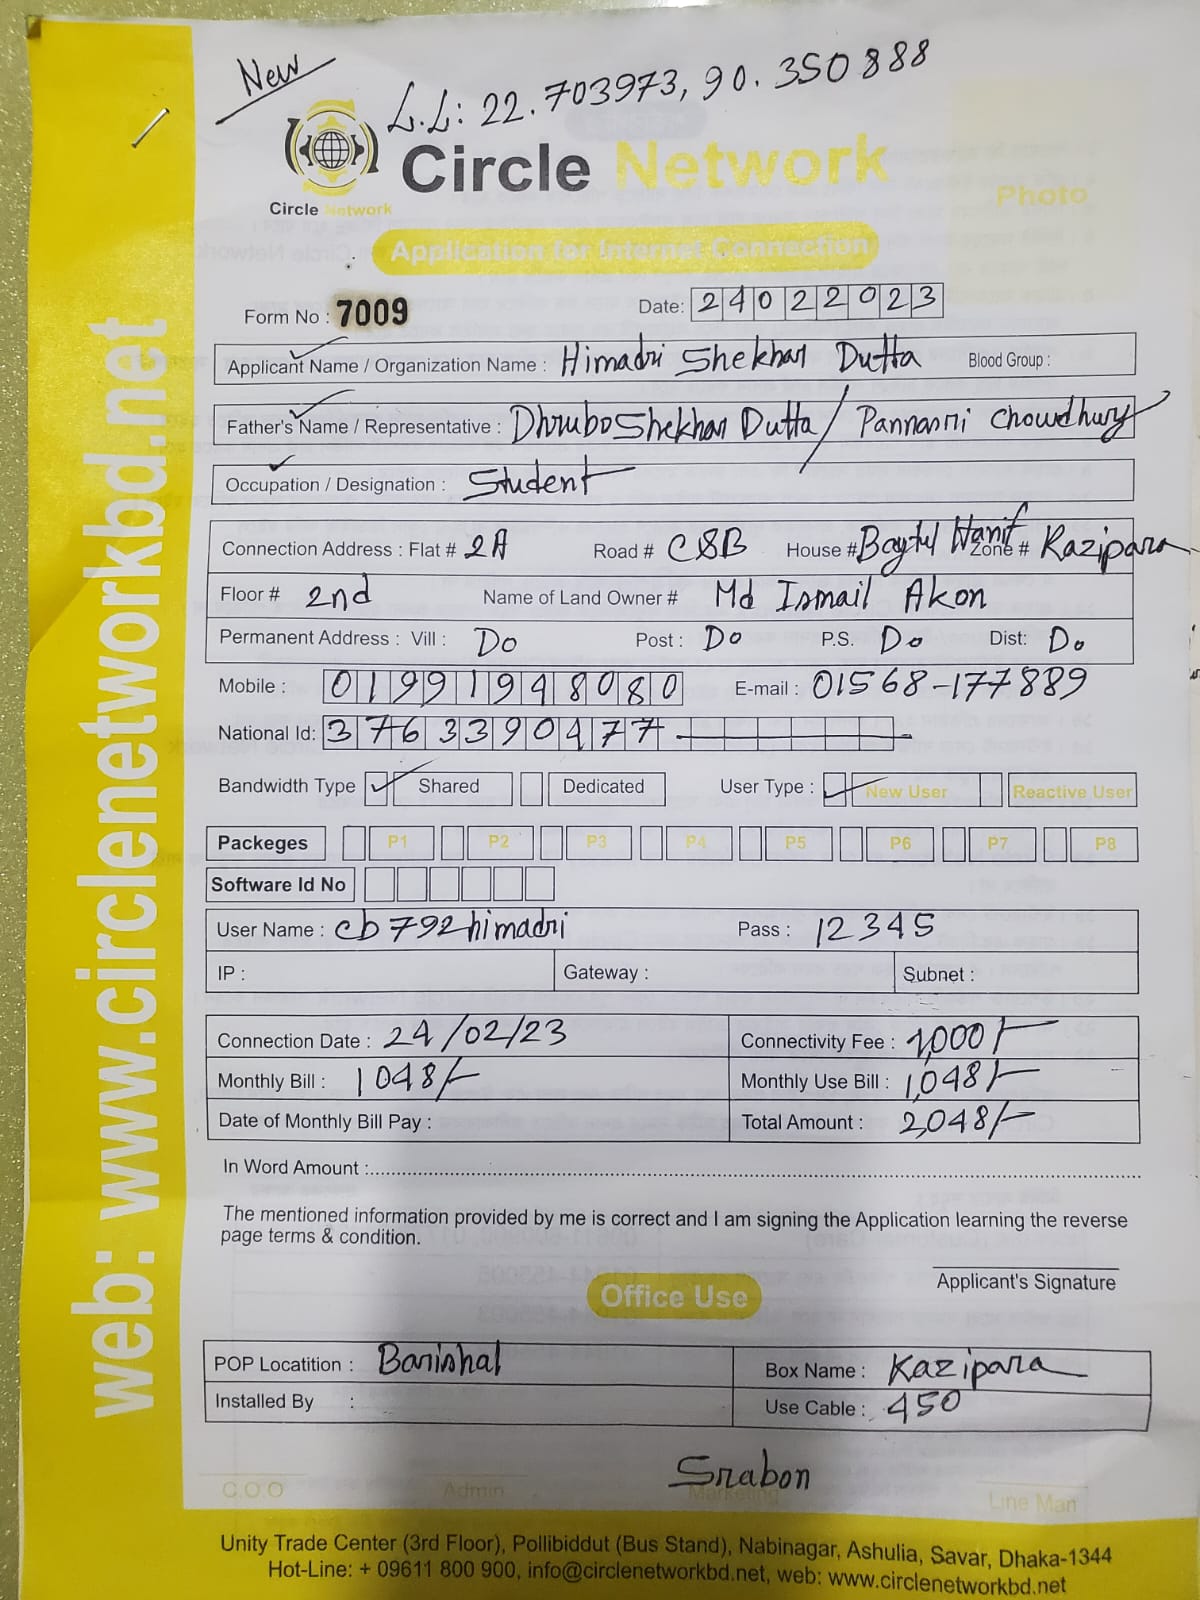 New
L.L: 22.703973, 90.350888
Circle Network
Circle Network
Photo
Application for Internet Connection
Form No : 7009 Date: 24022023
Applicant Name / Organization Name : Himadri Shekhar Dutta Blood Group :
Father's Name / Representative : Dhrubo Shekhar Dutta / Pannasri Chowdhury
Occupation / Designation : Student
Connection Address : Flat # 2A Road # CSB House # Baytul Hanif Zone # Kazipara
Floor # 2nd Name of Land Owner # Md Ismail Akon
Permanent Address : Vill : Do Post : Do P.S. Do Dist: Do
Mobile : 01991948080 E-mail : 01568-177889
National Id: 3763390477
Bandwidth Type Shared Dedicated User Type : New User Reactive User
Packeges P1 P2 P3 P4 P5 P6 P7 P8
Software Id No
User Name : cb792himadri Pass : 12345
IP : Gateway : Subnet :
Connection Date : 24/02/23 Connectivity Fee : 1,000/-
Monthly Bill : 1048/- Monthly Use Bill : 1,048/-
Date of Monthly Bill Pay : Total Amount : 2,048/-
In Word Amount :
The mentioned information provided by me is correct and I am signing the Application learning the reverse
page terms & condition.
Applicant's Signature
Office Use
POP Locatition : Barishal Box Name : Kazipara
Installed By : Use Cable : 450
Srabon
C.O.O Admin Marketing Line Man
Unity Trade Center (3rd Floor), Pollibiddut (Bus Stand), Nabinagar, Ashulia, Savar, Dhaka-1344
Hot-Line: + 09611 800 900, info@circlenetworkbd.net, web: www.circlenetworkbd.net
web: www.circlenetworkbd.net